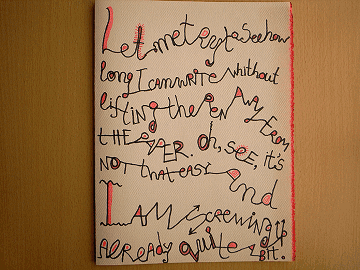 Let me try to see how
long I can write whithout
lifting the pen Away from
THE PAPER. Oh, SEE, it's
NOT that easy and
I AM screwing up
already quite a bit.